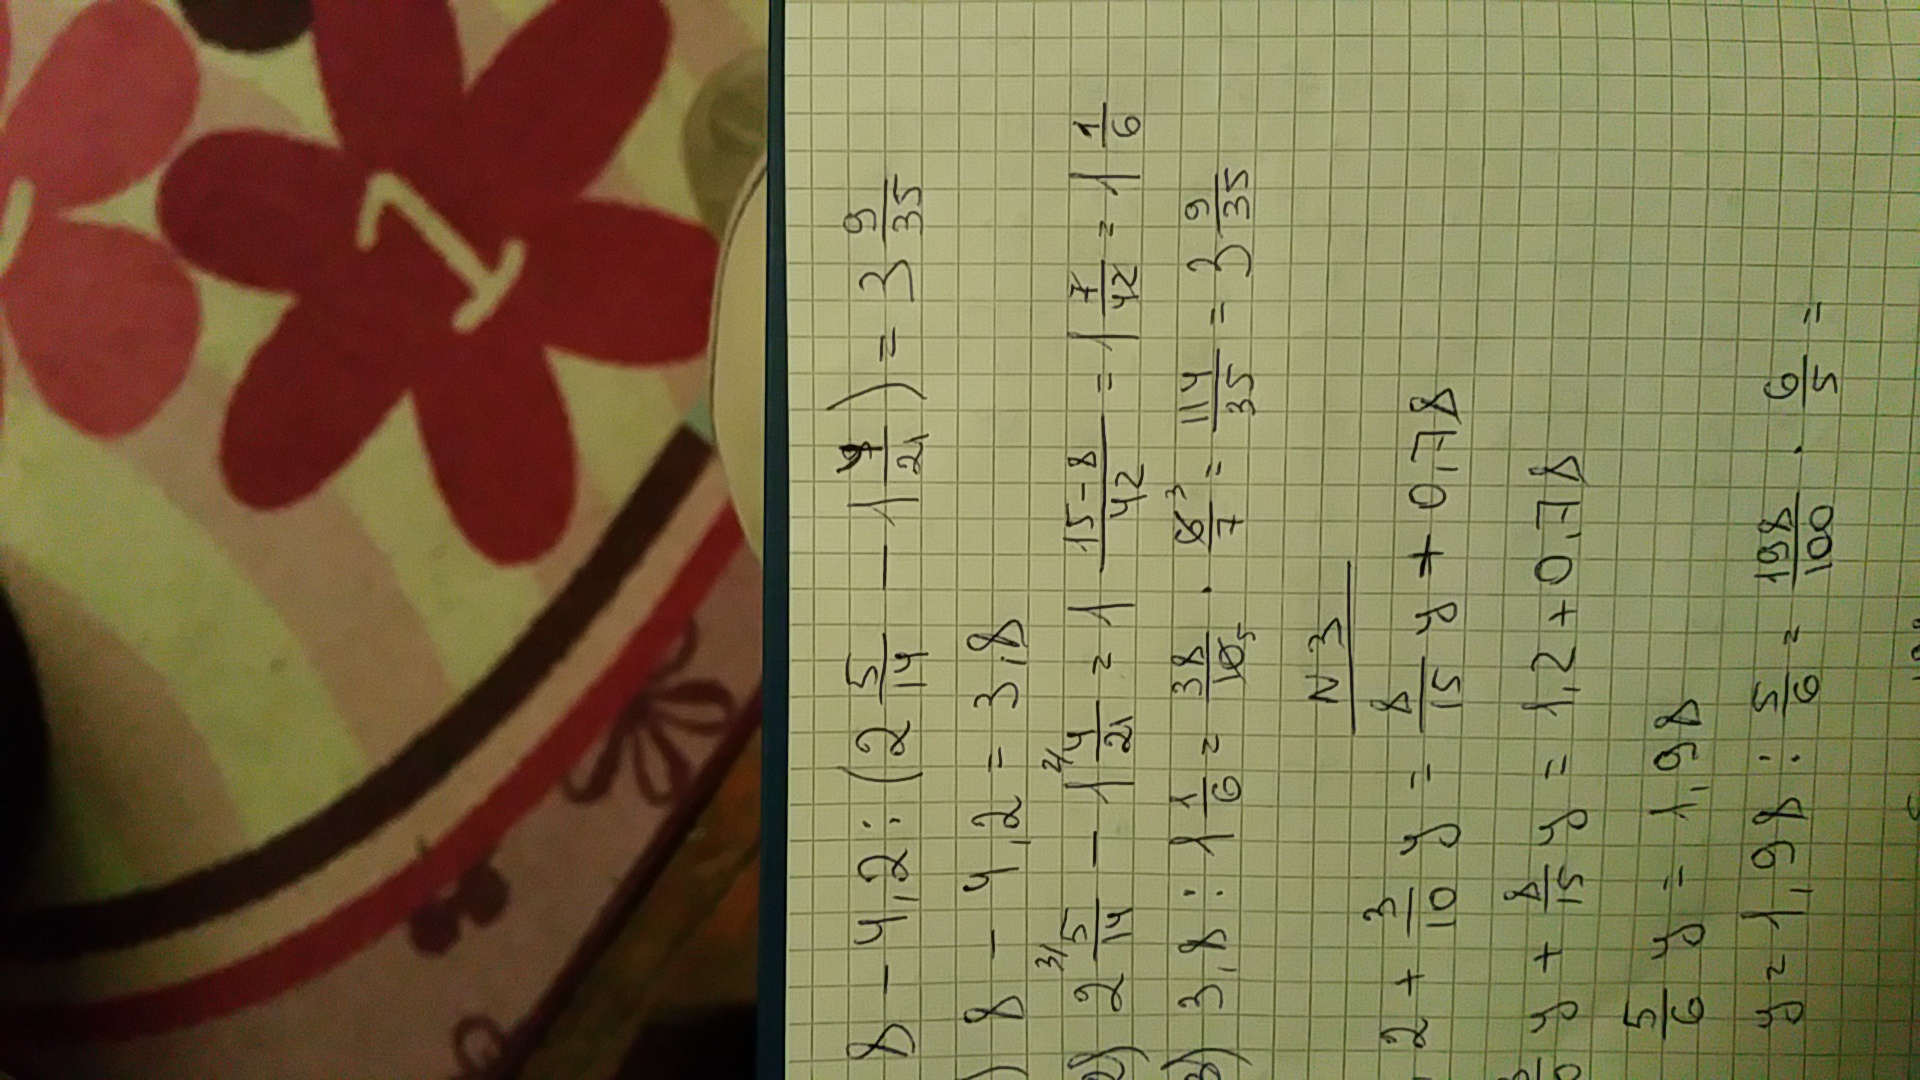 8 - 4,2 : (2 5/14 - 1 4/21) = 3 9/35
) 8 - 4,2 = 3,8
2) 2 5/14 - 1 4/21 = 1 (15-8)/42 = 1 7/42 = 1 1/6
3) 3,8 : 1 1/6 = 38/10 · 6/7 = 114/35 = 3 9/35
N 3
,2 + 3/10 y = - 8/15 y + 0,78
y + 8/15 y = 1,2 + 0,78
5/6 y = 1,98
y = 1,98 : 5/6 = 198/100 · 6/5 =